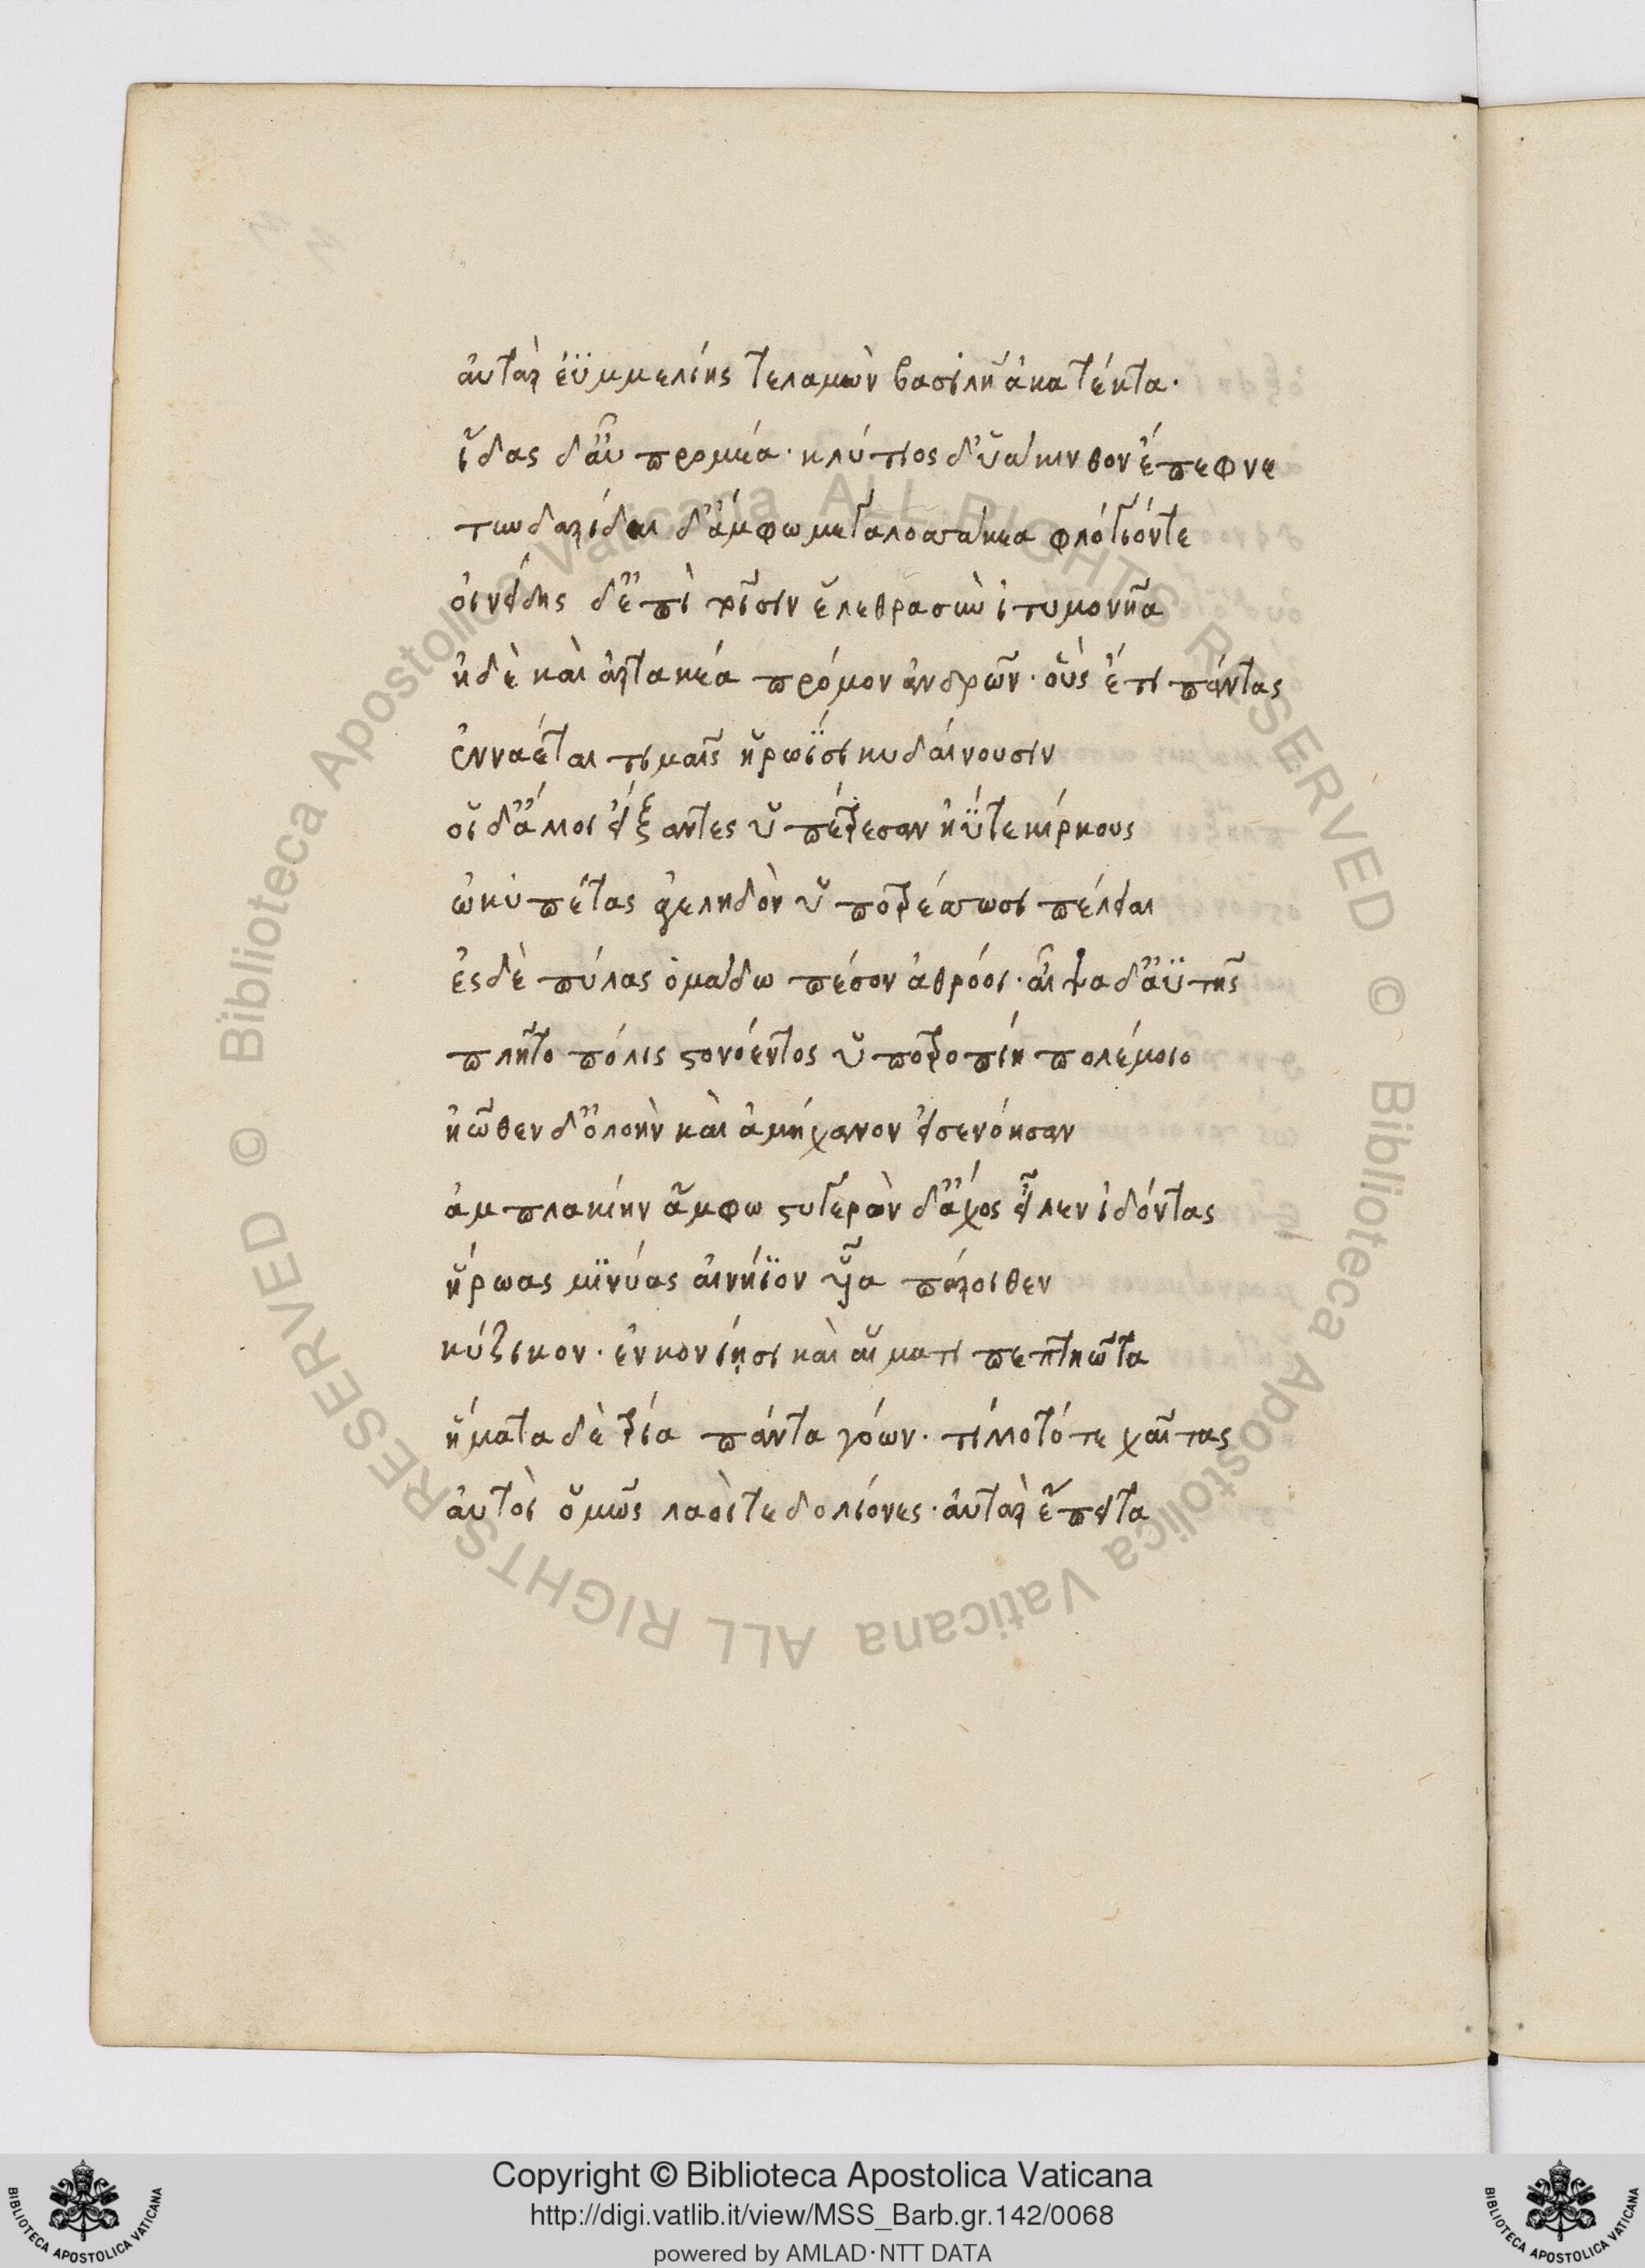 ἀυτὰρ ἐϋμμελίης τελαμὼν βασιλῆἀκατέκτα·
ἴδας δ'ἂυ προμέα· κλύτιος δ'ὑάκινθον ἔπεφνε
τυνδαρίδαι δ'ἄμφω μεγαλοσσάκεα φλόγιόντε
ὀινείδης δ'ἔπὶ τοῖσιν ἕλεθρασὺν ἰτυμονῆα
ἠδὲ καὶ ἀρτακέα πρόμον ἀνδρῶν· οὓς ἔτι πάντας
ἐνναέται τιμαῖς ἡρωΐσι κυδάινουσιν
οἱ δ'ἄλλοι εἴξαντες ὑπέτρεσαν ἠΰτε κίρκους
ὠκὺπέτας ἀγεληδὸν ὑποτρέσσωσι πέλειαι
ἐς δὲ πύλας ὁμάδω πέσον ἀθρόοι· ἂιψα δ'ἀϋτῆς
πλῆτο πόλις στονόεντος ὑποτροπίη πολέμοιο
ἠῶθεν δ'ὀλοὴν καὶ ἀμήχανον εἰσενόησαν
ἀμπλακίην ἄμφω στυγερὸν δ'ἄχος εἷλεν ἰδόντας
ἥρωας μϊνύας ἀινήϊον ὗια πάροιθεν
κύζικον· ἐν κονίῃσι καὶ ἅιματι πεπτηῶτα
ἤματα δὲ τρία πάντα γόων· τίλλοντό τε χαῖτας
ἀυτοὶ ὅμῶς λαοὶ τε δολίονες· ἀυτὰρ ἔπειτα
Copyright © Biblioteca Apostolica Vaticana
http://digi.vatlib.it/view/MSS_Barb.gr.142/0068
powered by AMLAD·NTT DATA